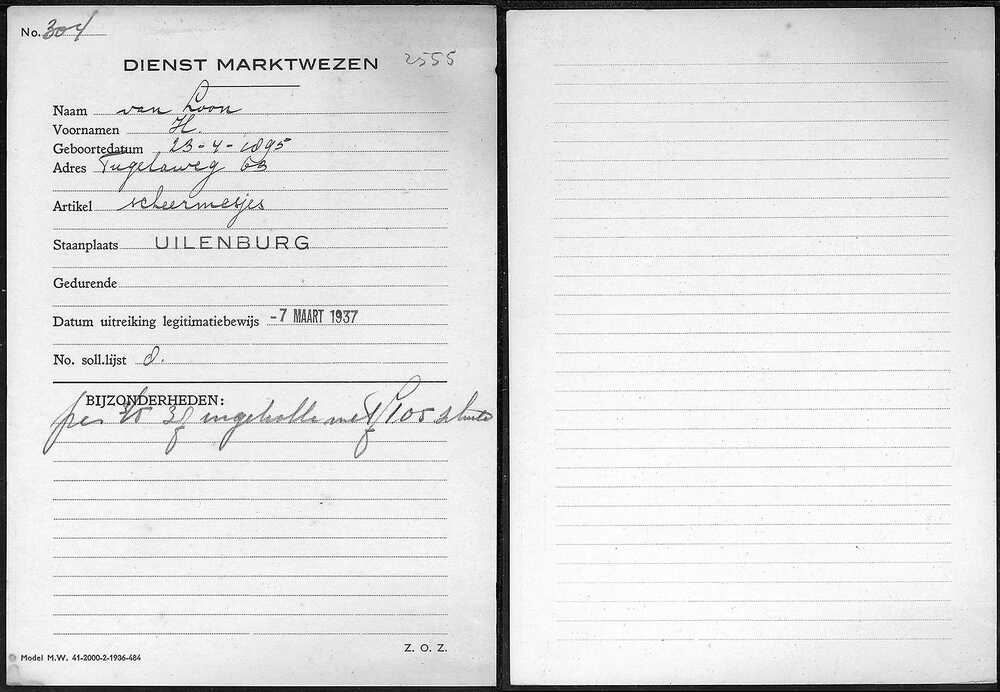 No. 304
DIENST MARKTWEZEN 2555
Naam van Loon
Voornamen H.
Geboortedatum 23-4-1895
Adres Tugelaweg 63
Artikel scheermesjes
Staanplaats UILENBURG
Gedurende
Datum uitreiking legitimatiebewijs -7 MAART 1937
No. soll.lijst 8.
BIJZONDERHEDEN:
per 3/5 38
Z. O. Z.
Model M.W. 41-2000-2-1936-484